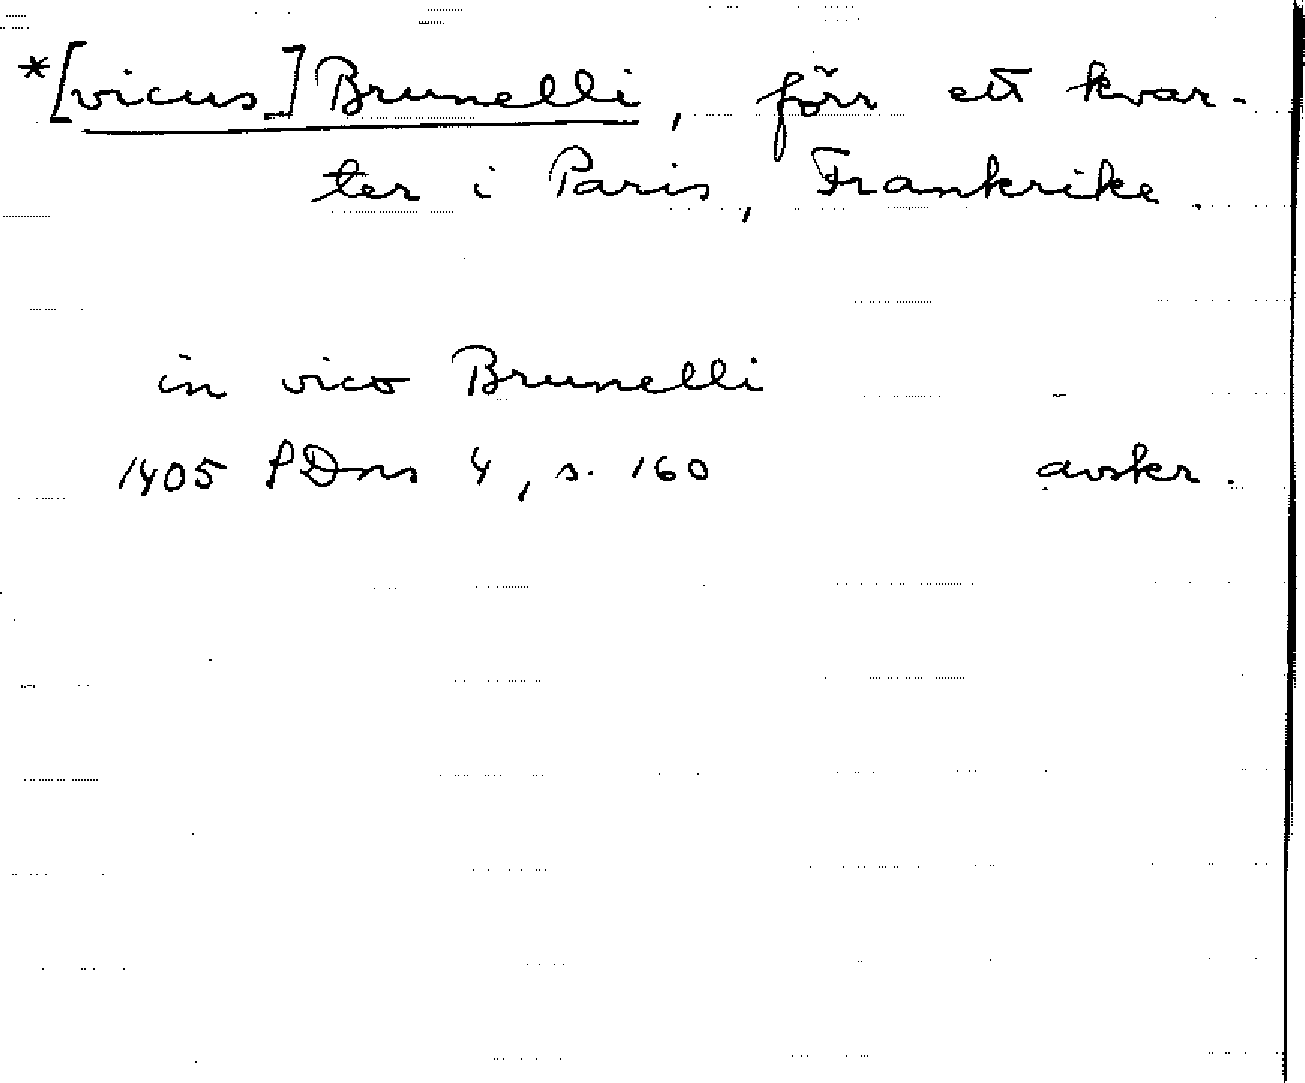 *[vicus] Brunelli, förr ett kvar-
ter i Paris, Frankrike.
in vico Brunelli
1405 SDns 4, s. 160 avskr.